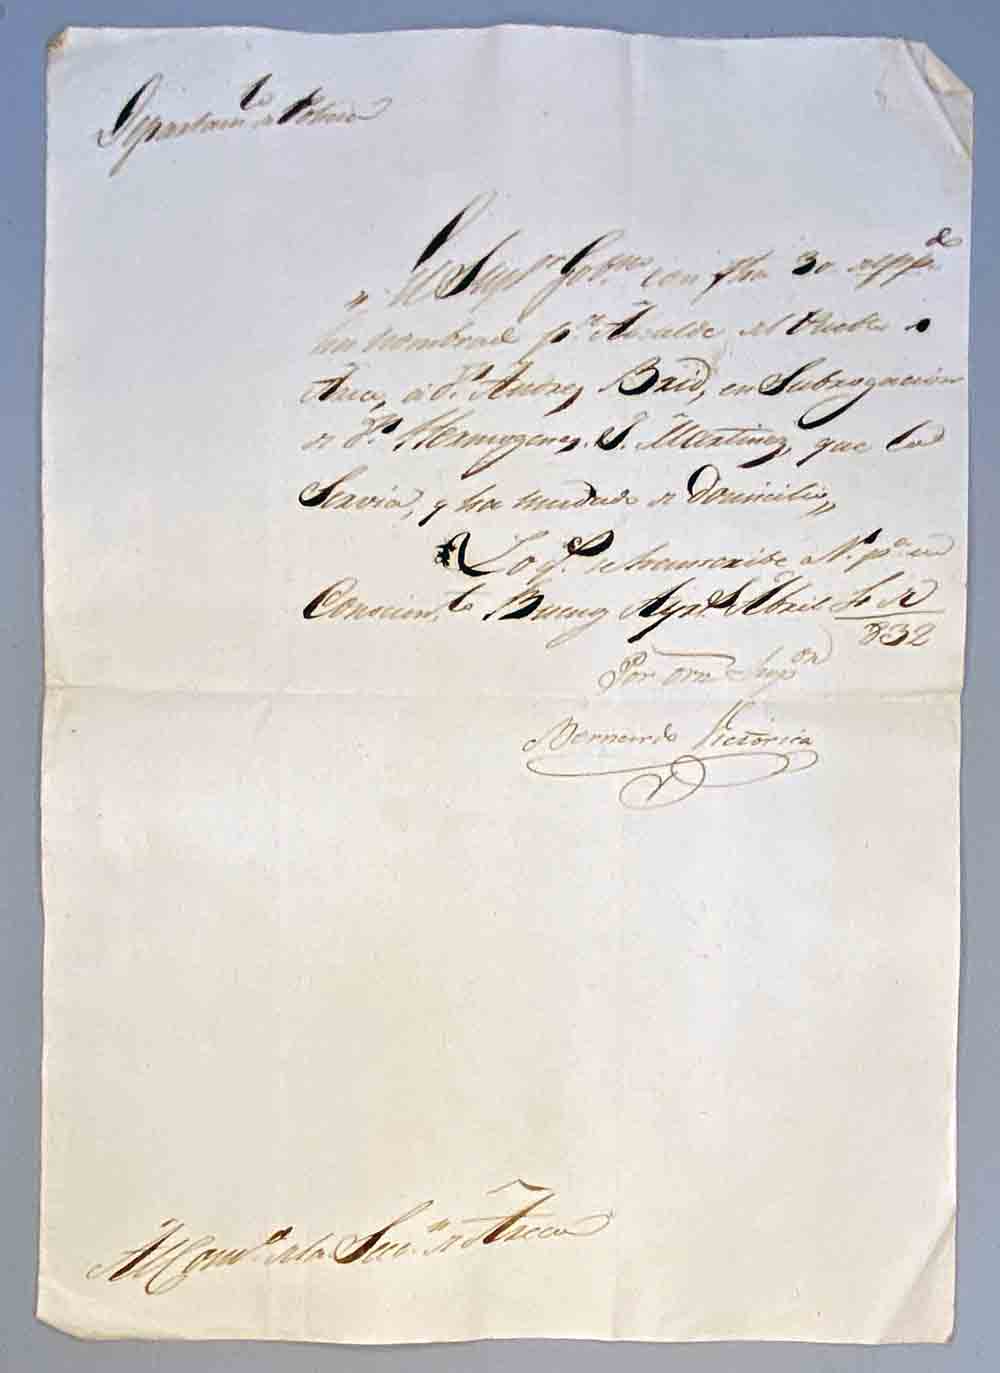 Departam.to de Policia
El Sup.or Gob.no con fha 30 del pp.do
ha nombrado p.a Alcalde del Pueblo de
Areco, á D.n Andres Brid, en Subrogacion
de D.n Hermogenes S. Martinez, que lo
Servia, y ha mudado de Domicilio,
Lo q.e se transcribe a V. p.a su
Conocim.to Buenos Ayr.s Abril 4 de
832
Por orn Sup.or
Bernardo Victorica
Al Com.o de la Secc.n de Areco